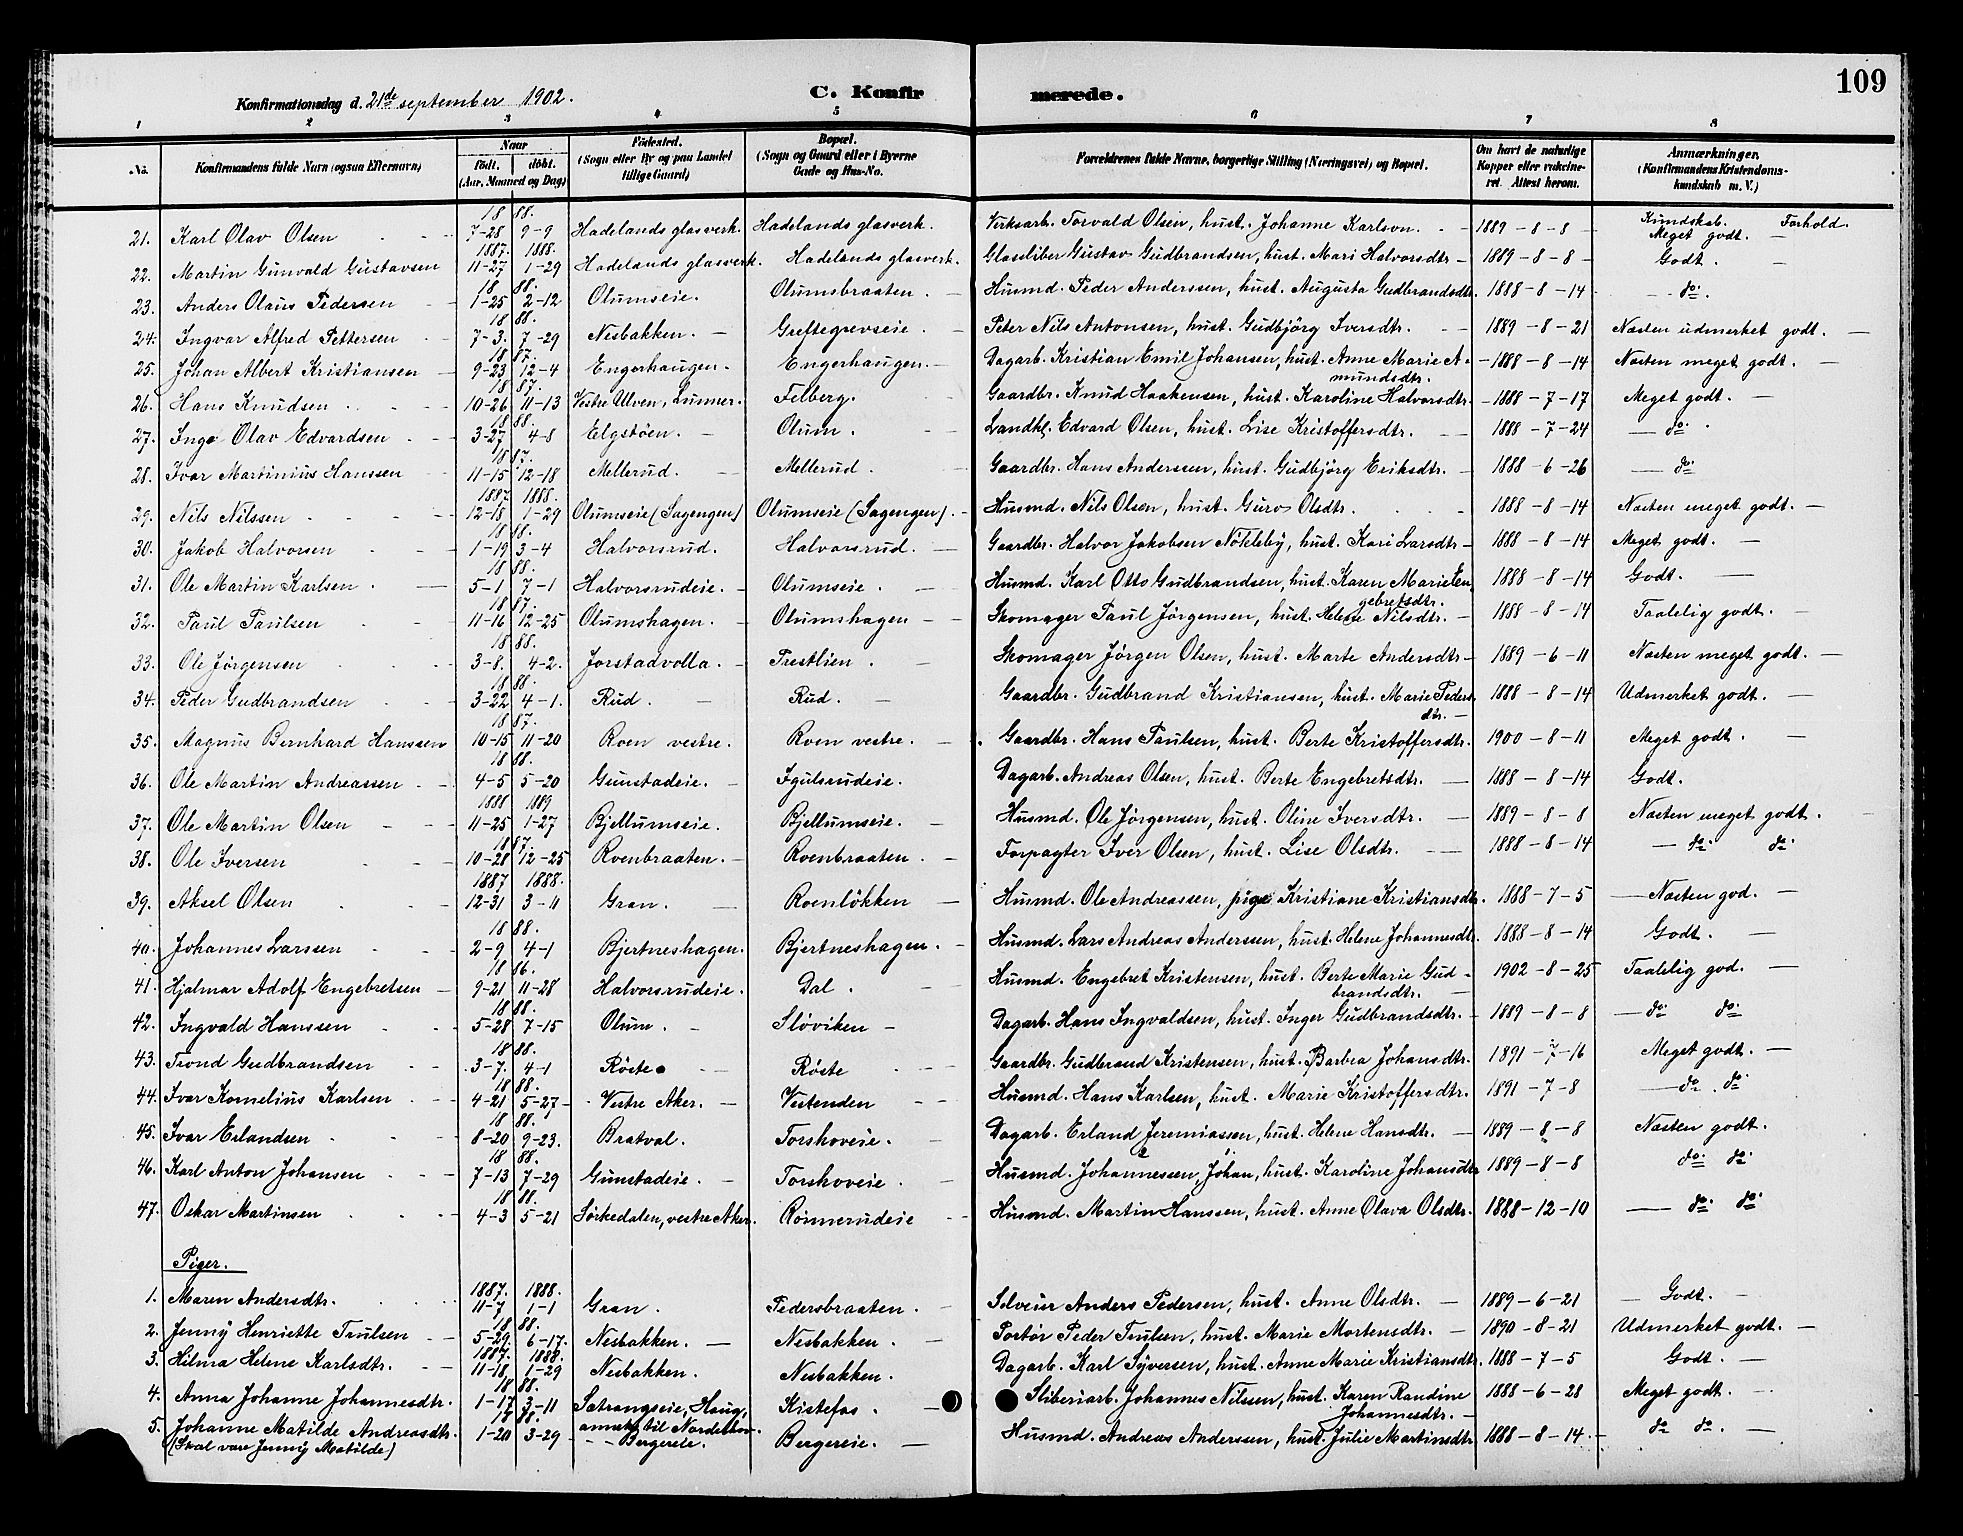 109
Konfirmationsdag d. 21de september 1902. C. Konfirmerede.
1 2 3 4 5 6 7 8
No. Konfirmandens fulde Navn (ogsaa Efternavn) Naar født. døbt. (Aar, Maaned og Dag) Fødested. (Sogn eller By og paa Landet tillige Gaard) Bopæl. (Sogn og Gaard eller i Byerne Gade og Hus-No. Forældrenes fulde Navne, borgerlige Stilling (Næringsvei) og Bopæl. Om havt de naturlige Kopper eller vakcineret. Attest herom. Anmærkninger. (Konfirmandens Kristendomskundskab m. V.)
Kundskab. Forhold.
21. Karl Olav Olsen 1888. 7-28 9-9 Hadelands glasverk. Hadelands glasverk. Verksarb. Torvald Olsen, hust. Johanne Karlson. 1889-8-8 Meget godt. —
22. Martin Gunvald Gustavsen 1887. 11-27 1888. 1-29 Hadelands glasverk. Hadelands glasverk. Glassliber Gustav Gudbrandsen, hust. Mari Halvorsdtr 1889-8-8 Godt. —
23. Anders Olaus Pedersen 1888. 1-25 2-12 Olumseie. Olumsbraaten. Husmd. Peder Anderssen, hust. Augusta Gudbrandsdtr. 1888-8-14 — do.
24. Ingvar Alfred Pettersen 1888. 7-3. 7-29 Nesbakken. Greftegrevseie. Peter Nils Antonsen, hust. Gudbjörg Iversdtr. 1889-8-21 Næsten udmerket godt. —
25. Johan Albert Kristiansen 1887. 9-23 12-4 Engerhaugen. Engerhaugen. Dagarb. Kristian Emil Johansen, hust. Anne Marie Amundsdtr. 1888-8-14 Næsten meget godt. —
26. Hans Knudsen 1887. 10-26 11-13 Vestre Ulven, Lunner. Felberg. Gaardbr. Knud Haakensen, hust. Karoline Halvorsdtr. 1888-7-17 Meget godt. —
27. Inge Olav Edvardsen 1888. 3-27 4-8 Elgstöen. Olum. Landhl. Edvard Olsen, hust. Lise Kristoffersdtr. 1888-7-24 — do.
28. Ivar Martinius Hanssen 1887. 11-15 12-18 Mellerud. Mellerud. Gaardbr. Hans Anderssen, hust. Gudbjörg Eriksdtr. 1888-6-26 — do
29. Nils Nilssen 1887. 12-18 1888. 1-29 Olumseie (Sagengen) Olumseie (Sagengen). Husmd. Nils Olsen, hust. Guro Olsdtr. 1888-8-14 Næsten meget godt. —
30. Jakob Halvorsen 1888. 1-19 3-4 Halvorsrud. Halvorsrud. Gaardbr. Halvor Jakobsen Nökleby, hust. Kari Larsdtr 1888-8-14 Meget godt. —
31. Ole Martin Karlsen 1888. 5-1 7-1 Halvorsrudeie. Olumseie. Husmd. Karl Otto Gudbrandsen, hust. Karen Marie Engebretsdtr. 1888-8-14 Godt. —
32. Paul Paulsen 1887. 11-16 12-25 Olumshagen. Olumshagen Skomager Paul Jörgensen, hust. Helene Nilsdtr. 1888-8-14 Taalelig godt. —
33. Ole Jörgensen 1888. 3-8. 4-2. Jorstadvolla. Prestlien. Skomager Jörgen Olsen, hust. Marte Andersdtr 1889-6-11 Næsten meget godt. —
34. Peder Gudbrandsen 1888. 3-22 4-1. Rud. Rud. Gaardbr. Gudbrand Kristiansen, hust. Marie Pedersdtr. 1888-8-14 Udmerket godt. —
35. Magnus Bernhard Hanssen 1887. 10-15 11-20 Roen vestre. Roen vestre. Gaardbr. Hans Paulsen, hust. Berte Kristoffersdtr. 1900-8-11 Meget godt. —
36. Ole Martin Andreassen 1888. 4-5 5-20 Gunstadeie. Igulsrudeie. Dagarb. Andreas Olsen, hust. Berte Engebretsdtr. 1888-8-14 Godt.
37. Ole Martin Olsen 1888 11-25 1889 1-27 Bjellumseie. Bjellumseie. Husmd. Ole Jörgensen, hust. Oline Iversdtr. 1889-8-8 Næsten meget godt. —
38. Ole Iversen 1887. 10-28 12-25 Roenbraaten. Roenbraaten. Forpagter Iver Olsen, hust. Lise Olsdtr. 1888-8-14 — do. do.
39. Aksel Olsen 1887 12-31 1888. 3-11 Gran. Roenlökken Husmd. Ole Andreassen, pige Kristiane Kristiansdtr. 1888-7-5 — Næsten god. —
40. Johannes Larssen 1888. 2-9 4-1 Bjertneshagen. Bjertneshagen. Husmd. Lars Andreas Anderssen, hust. Helene Johannesdtr. 1888-8-14 Godt. —
41. Hjalmar Adolf Engebretsen 1886. 9-21 11-28 Halvorsrudeie. Dal. Husmd. Engebret Kristensen, hust. Berte Marie Gudbrandsdtr. 1902-8-25 Taalelig god. —
42. Ingvald Hanssen 1888. 5-28 7-15 Olum. Slöviken Dagarb. Hans Ingvaldsen, hust. Inger Gudbrandsdtr. 1889-8-8 — do do.
43. Trond Gudbrandsen 1888. 3-7. 4-1 Röste Röste Gaardbr. Gudbrand Kristensen, hust. Barbra Johansdtr. 1891-7-16 Meget godt. —
44. Ivar Kornelius Karlsen 1888. 4-21 5-27 Vestre Aker. Vestenden Husmd. Hans Karlsen, hust. Marie Kristoffersdtr. 1891-7-8 — do. do.
45. Ivar Erlandsen 1888. 8-20 9-23. Bratval. Torshoveie. Dagarb. Erland Jeremiassen, hust. Helene Hansdtr. 1889-8-8 Næsten godt.
46. Karl Anton Johansen 1888. 7-13 7-29 Gunstadeie. Torshoveie. Husmd. Johannessen, Johan, hust. Karoline Johansdtr 1889-8-8 do. do.
47. Oskar Martinsen 1888. 4-3 5-21 Sörkedalen, vestre Aker. Rönnerudeie Husmd. Martin Hanssen, hust. Anne Olava Olsdtr. 1888-12-10 — do. do.
Piger.
1. Maren Andersdtr. 1887. 11-7 1888. 1-1 Gran. Pedersbraaten. Selveier Anders Pedersen, hust. Anne Olsdtr. 1889-6-21 — Godt. —
2. Jenny Henriette Trulsen 1888. 5-29 6-17. Nesbakken. Nesbakken. Portör Peder Trulsen, hust. Marie Mortensdtr. 1890-8-21 Udmerket godt. —
3. Hilma Helene Karlsdtr. 1887. 11-18 1888. 1-29 Nesbakken. Nesbakken. Dagarb. Karl Syversen, hust. Anne Marie Kristiansdtr. 1888-7-5 Godt. —
4. Anna Johanne Johannesdtr. 1888. 1-17 3-11 Sætrangseie, Haug, anneks til Norderhov. Kistefos. Sliberiarb. Johannes Nilsen, hust. Karen Randine Johannesdtr. 1888-6-28 Meget godt. —
5. Johanne Matilde Andreasdtr. (Skal være Jenny Matilde) 1888. 1-20 3-29 Bergereie. Bergereie. Husmd. Andreas Anderssen, hust. Julie Martinsdtr 1888-8-14 do do. —